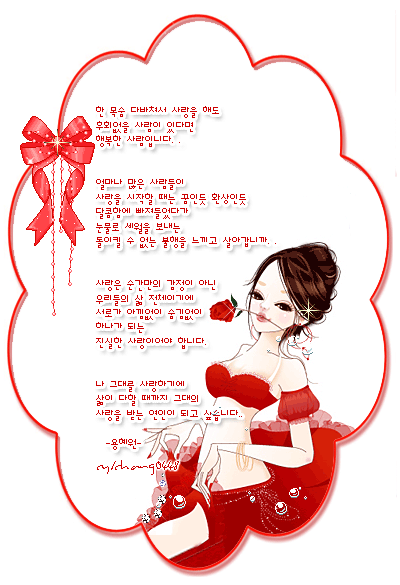 한 목숨 다바쳐서 사랑을 해도
후회없을 사랑이 있다면
행복한 사람입니다. .
얼마나 많은 사람들이
사랑을 시작할 때는 꿈인듯 환상인듯
달콤함에 빠져들었다가
눈물로 세월을 보내는
돌이킬 수 없는 불행을 느끼고 살아갑니까. .
사랑은 순간만의 감정이 아닌
우리들의 삶 전체이기에
서로가 아낌없이 숨김없이
하나가 되는
진실한 사랑이어야 합니다.
나 그대로 사랑하기에
삶이 다할 때까지 그대의
사랑을 받는 연인이 되고 싶습니다..
-용혜원-